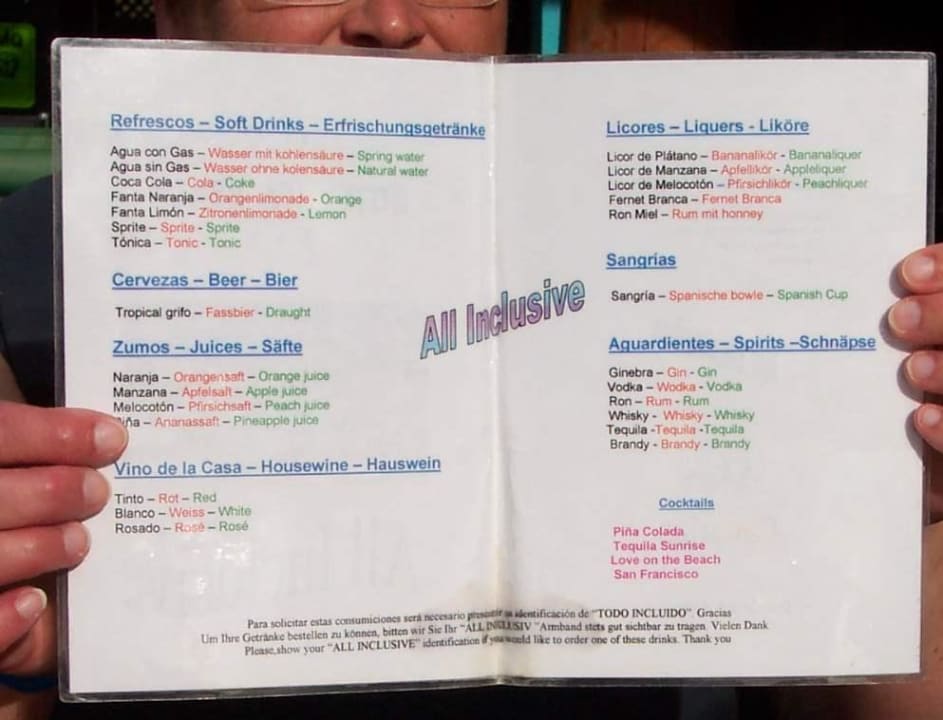 Refrescos – Soft Drinks – Erfrischungsgetränke
Agua con Gas – Wasser mit kohlensäure – Spring water
Agua sin Gas – Wasser ohne kolensäure – Natural water
Coca Cola – Cola - Coke
Fanta Naranja – Orangenlimonade - Orange
Fanta Limón – Zitronenlimonade - Lemon
Sprite – Sprite - Sprite
Tónica – Tonic - Tonic
Cervezas – Beer – Bier
Tropical grifo – Fassbier - Draught
Zumos – Juices – Säfte
Naranja – Orangensaft – Orange juice
Manzana – Apfelsaft – Apple juice
Melocotón – Pfirsichsaft – Peach juice
– Ananassaft – Pineapple juice
Vino de la Casa – Housewine – Hauswein
Tinto – Rot – Red
Blanco – Weiss – White
Rosado – Rosé – Rosé
All Inclusive
Licores – Liquers - Liköre
Licor de Plátano – Bananalikör - Bananaliquer
Licor de Manzana – Apfellikör - Appleliquer
Licor de Melocotón – Pfirsichlikör - Peachliquer
Fernet Branca – Fernet Branca
Ron Miel – Rum mit honney
Sangrías
Sangría – Spanische bowle – Spanish Cup
Aguardientes – Spirits –Schnäpse
Ginebra – Gin - Gin
Vodka – Wodka - Vodka
Ron – Rum - Rum
Whisky - Whisky - Whisky
Tequila -Tequila -Tequila
Brandy - Brandy - Brandy
Cocktails
Piña Colada
Tequila Sunrise
Love on the Beach
San Francisco
Para solicitar estas consumiciones será necesario identificación de "TODO INCLUIDO". Gracias
Um Ihre Getränke bestellen zu können, bitten wir Sie Ihr "ALL INCLUSIV "Armband stets gut sichtbar zu tragen. Vielen Dank
Please,show your "ALL INCLUSIVE" identification if you would like to order one of these drinks. Thank you